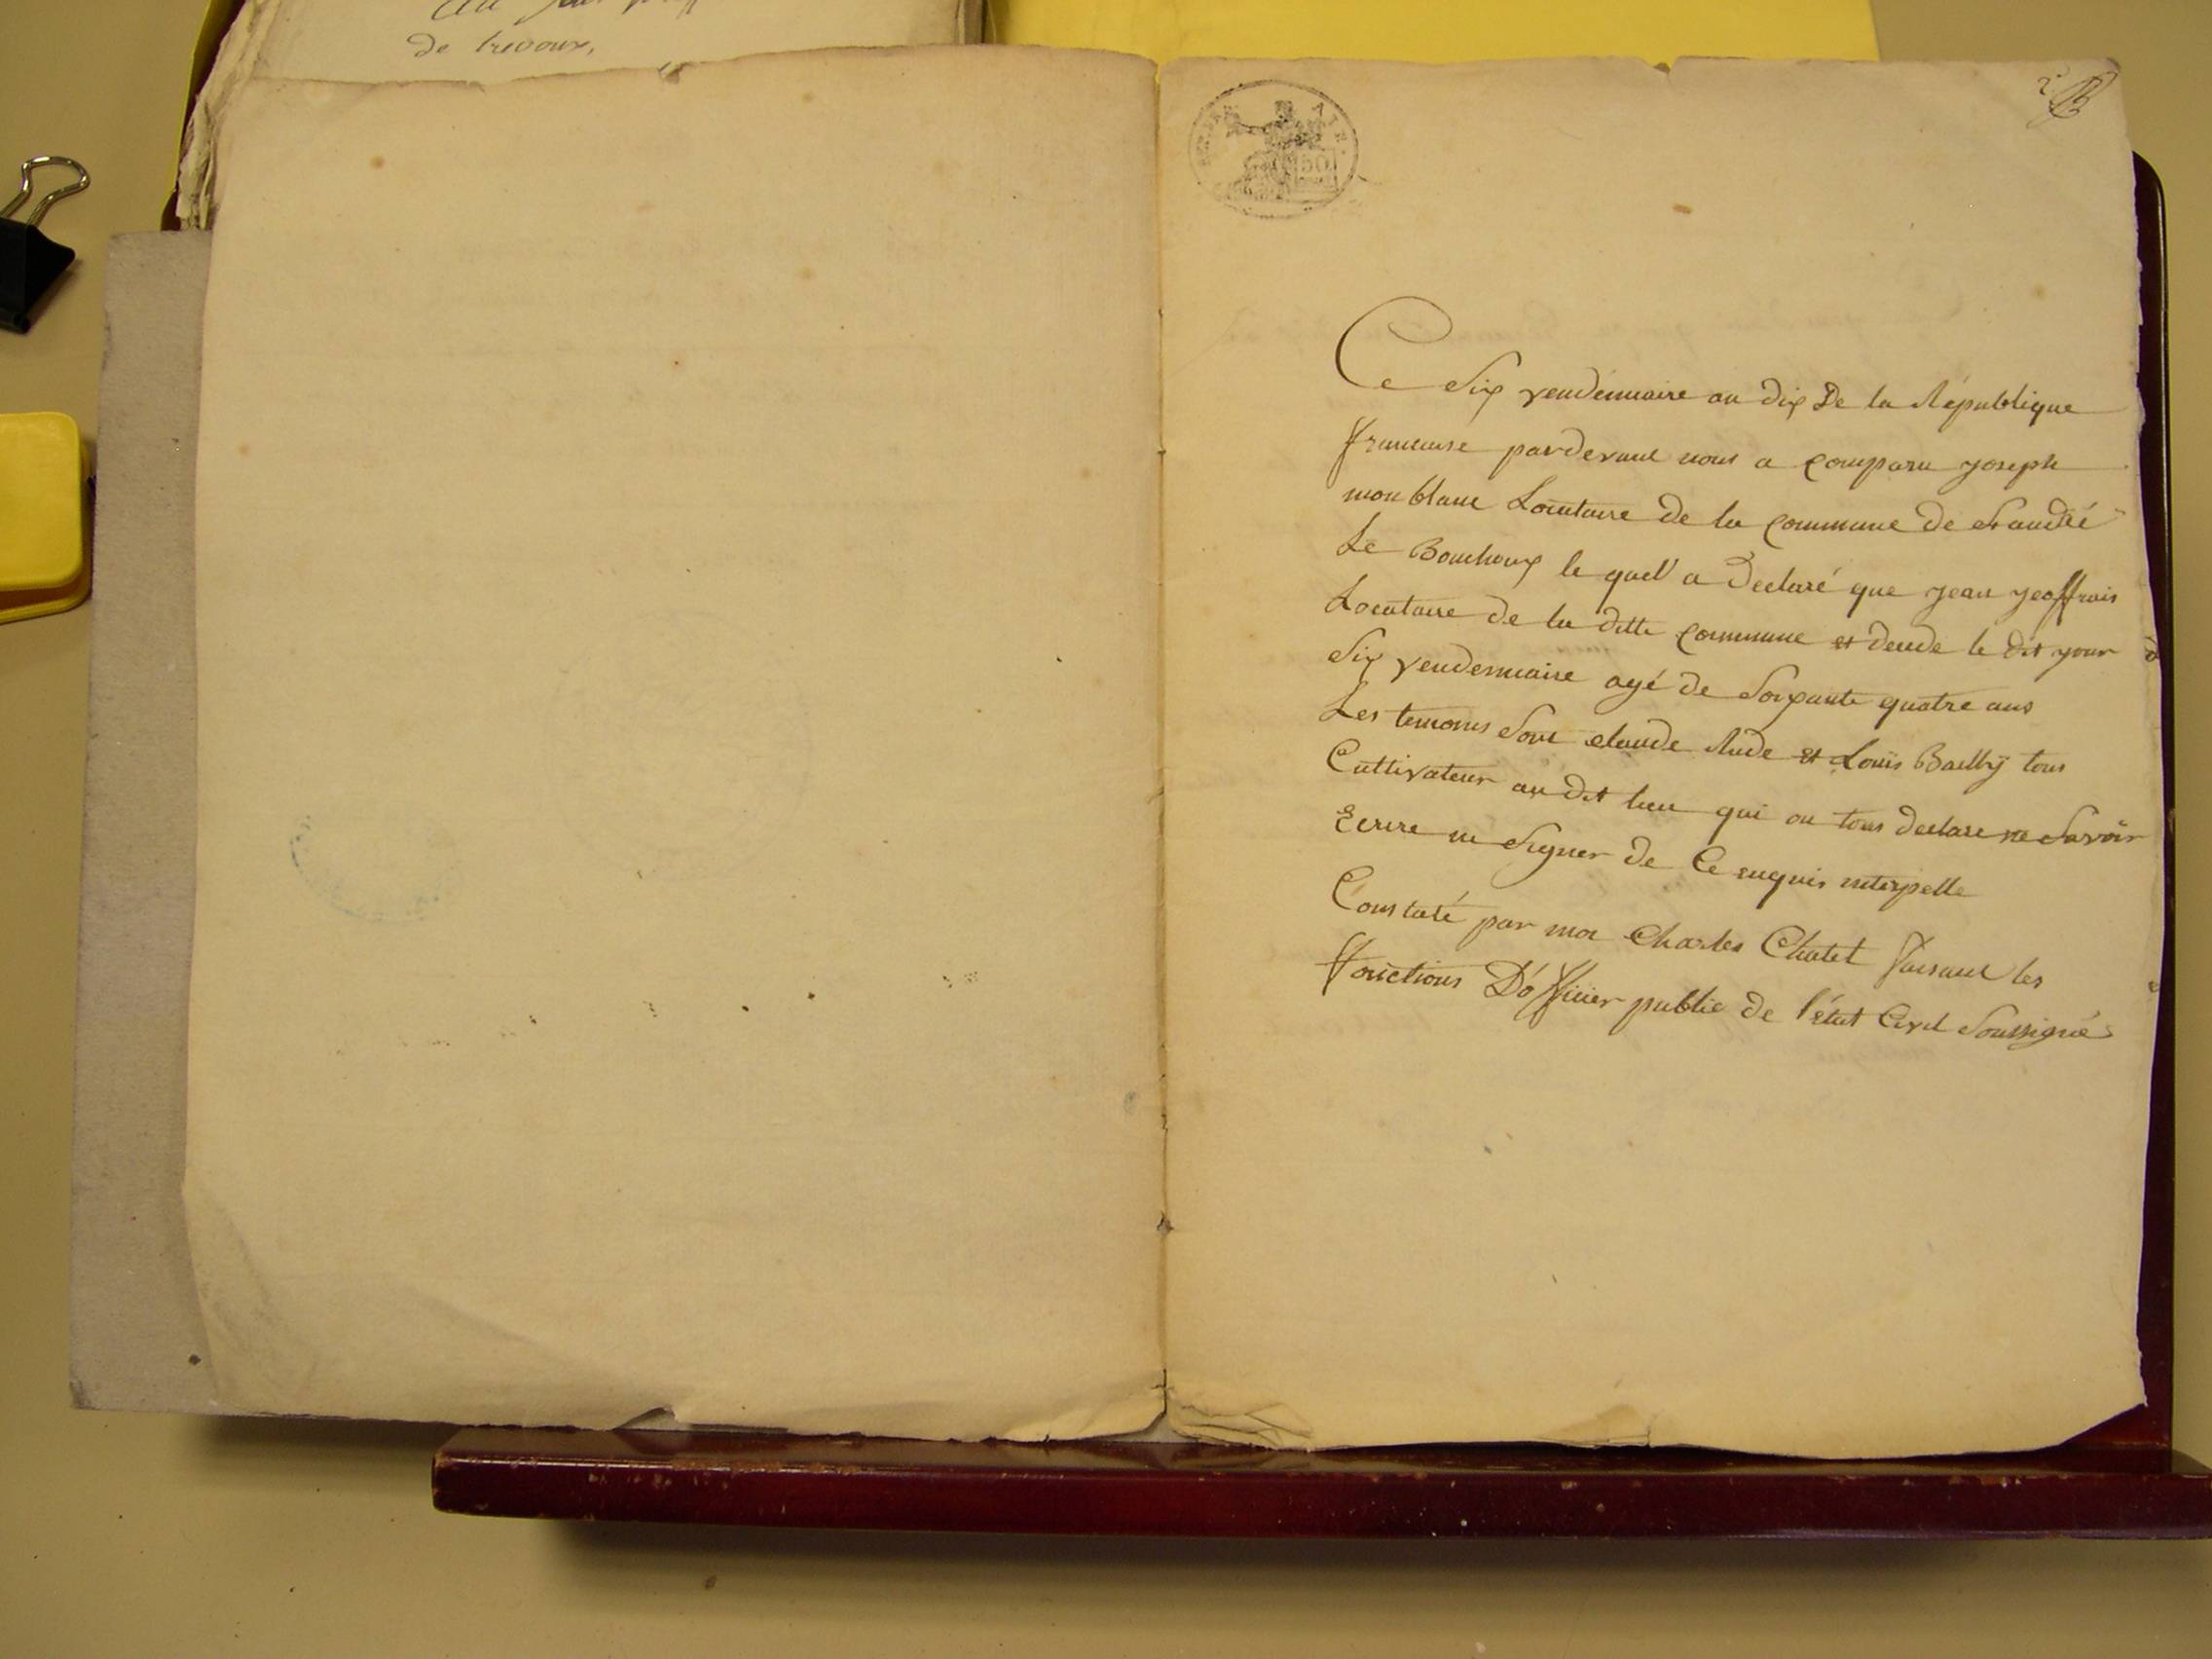 de trevoux,
50
Ce Six vendémiaire an dix De la République
francaise pardevant nous a comparu joseph
mon blanc Locataire de la commune de St andré
Le Bouchoux le quel a Declaré que jean jeoffrais
Locataire de la ditte commune et décédé le dit jour
Six vendemiaire agé de Soixante quatre ans
Les temoins Sont claude Rude et Louis Bailly tous
Cultivateur au dit lieu qui on tous declare ne Savoir
Ecrire ne Signer de Ce enquis interpelle
Constaté par moi Charles Chatel faisant les
fonctions D'officier public de l'état Civil Soussigné